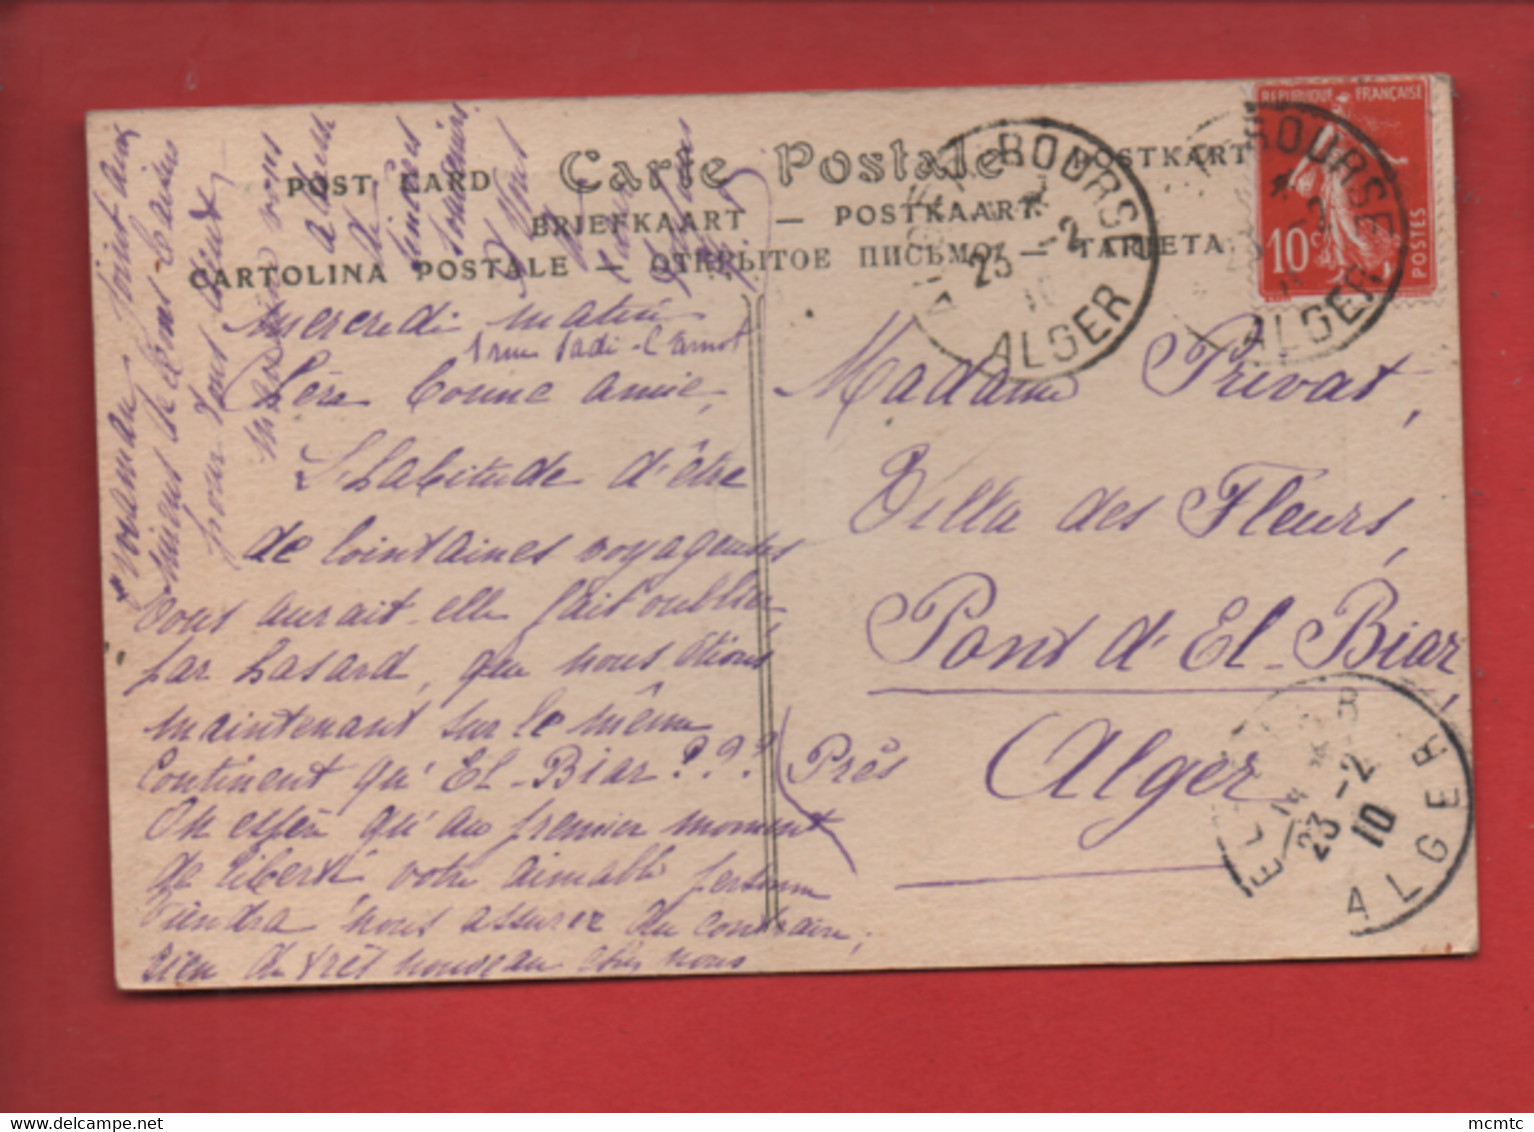 Carte Postale
POST CARD
POSTKART
BRIEFKAART — POSTKAART
CARTOLINA POSTALE — ОТКРЫТОЕ ПИСЬМО — TARJETA
REPUBLIQUE FRANÇAISE
10c
POSTES
BOURSE
23 -2
10
ALGER
BOURSE
ALGER
EL-BIAR
23 -2
10
ALGER
Mercredi matin
1 rue Sadi-Carnot
Chère bonne amie,
L'habitude d'être
de lointaines voyageuses
vous aurait-elle fait oublier
par hasard, que nous étions
maintenant sur le même
Continent qu'El-Biar ???
On espère qu'au premier moment
de liberté votre aimable personne
viendra nous assurer du contraire;
rien de très nouveau chez nous
Maman joint aux
miens
pour tout
sincères
souvenirs
Madame Privat,
Villa des Fleurs,
Pont d'El-Biar,
(Près Alger
mcmtc